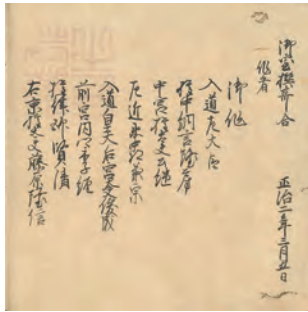 御室撰哥合 正治二年三月五日
一作者
御作
入道左大臣
權中納言隆房
中宮權大夫公継
左近中将兼宗
入道皇太后宮大夫俊成
前宮内卿季経
權律師賢清
右京權大夫藤原隆信